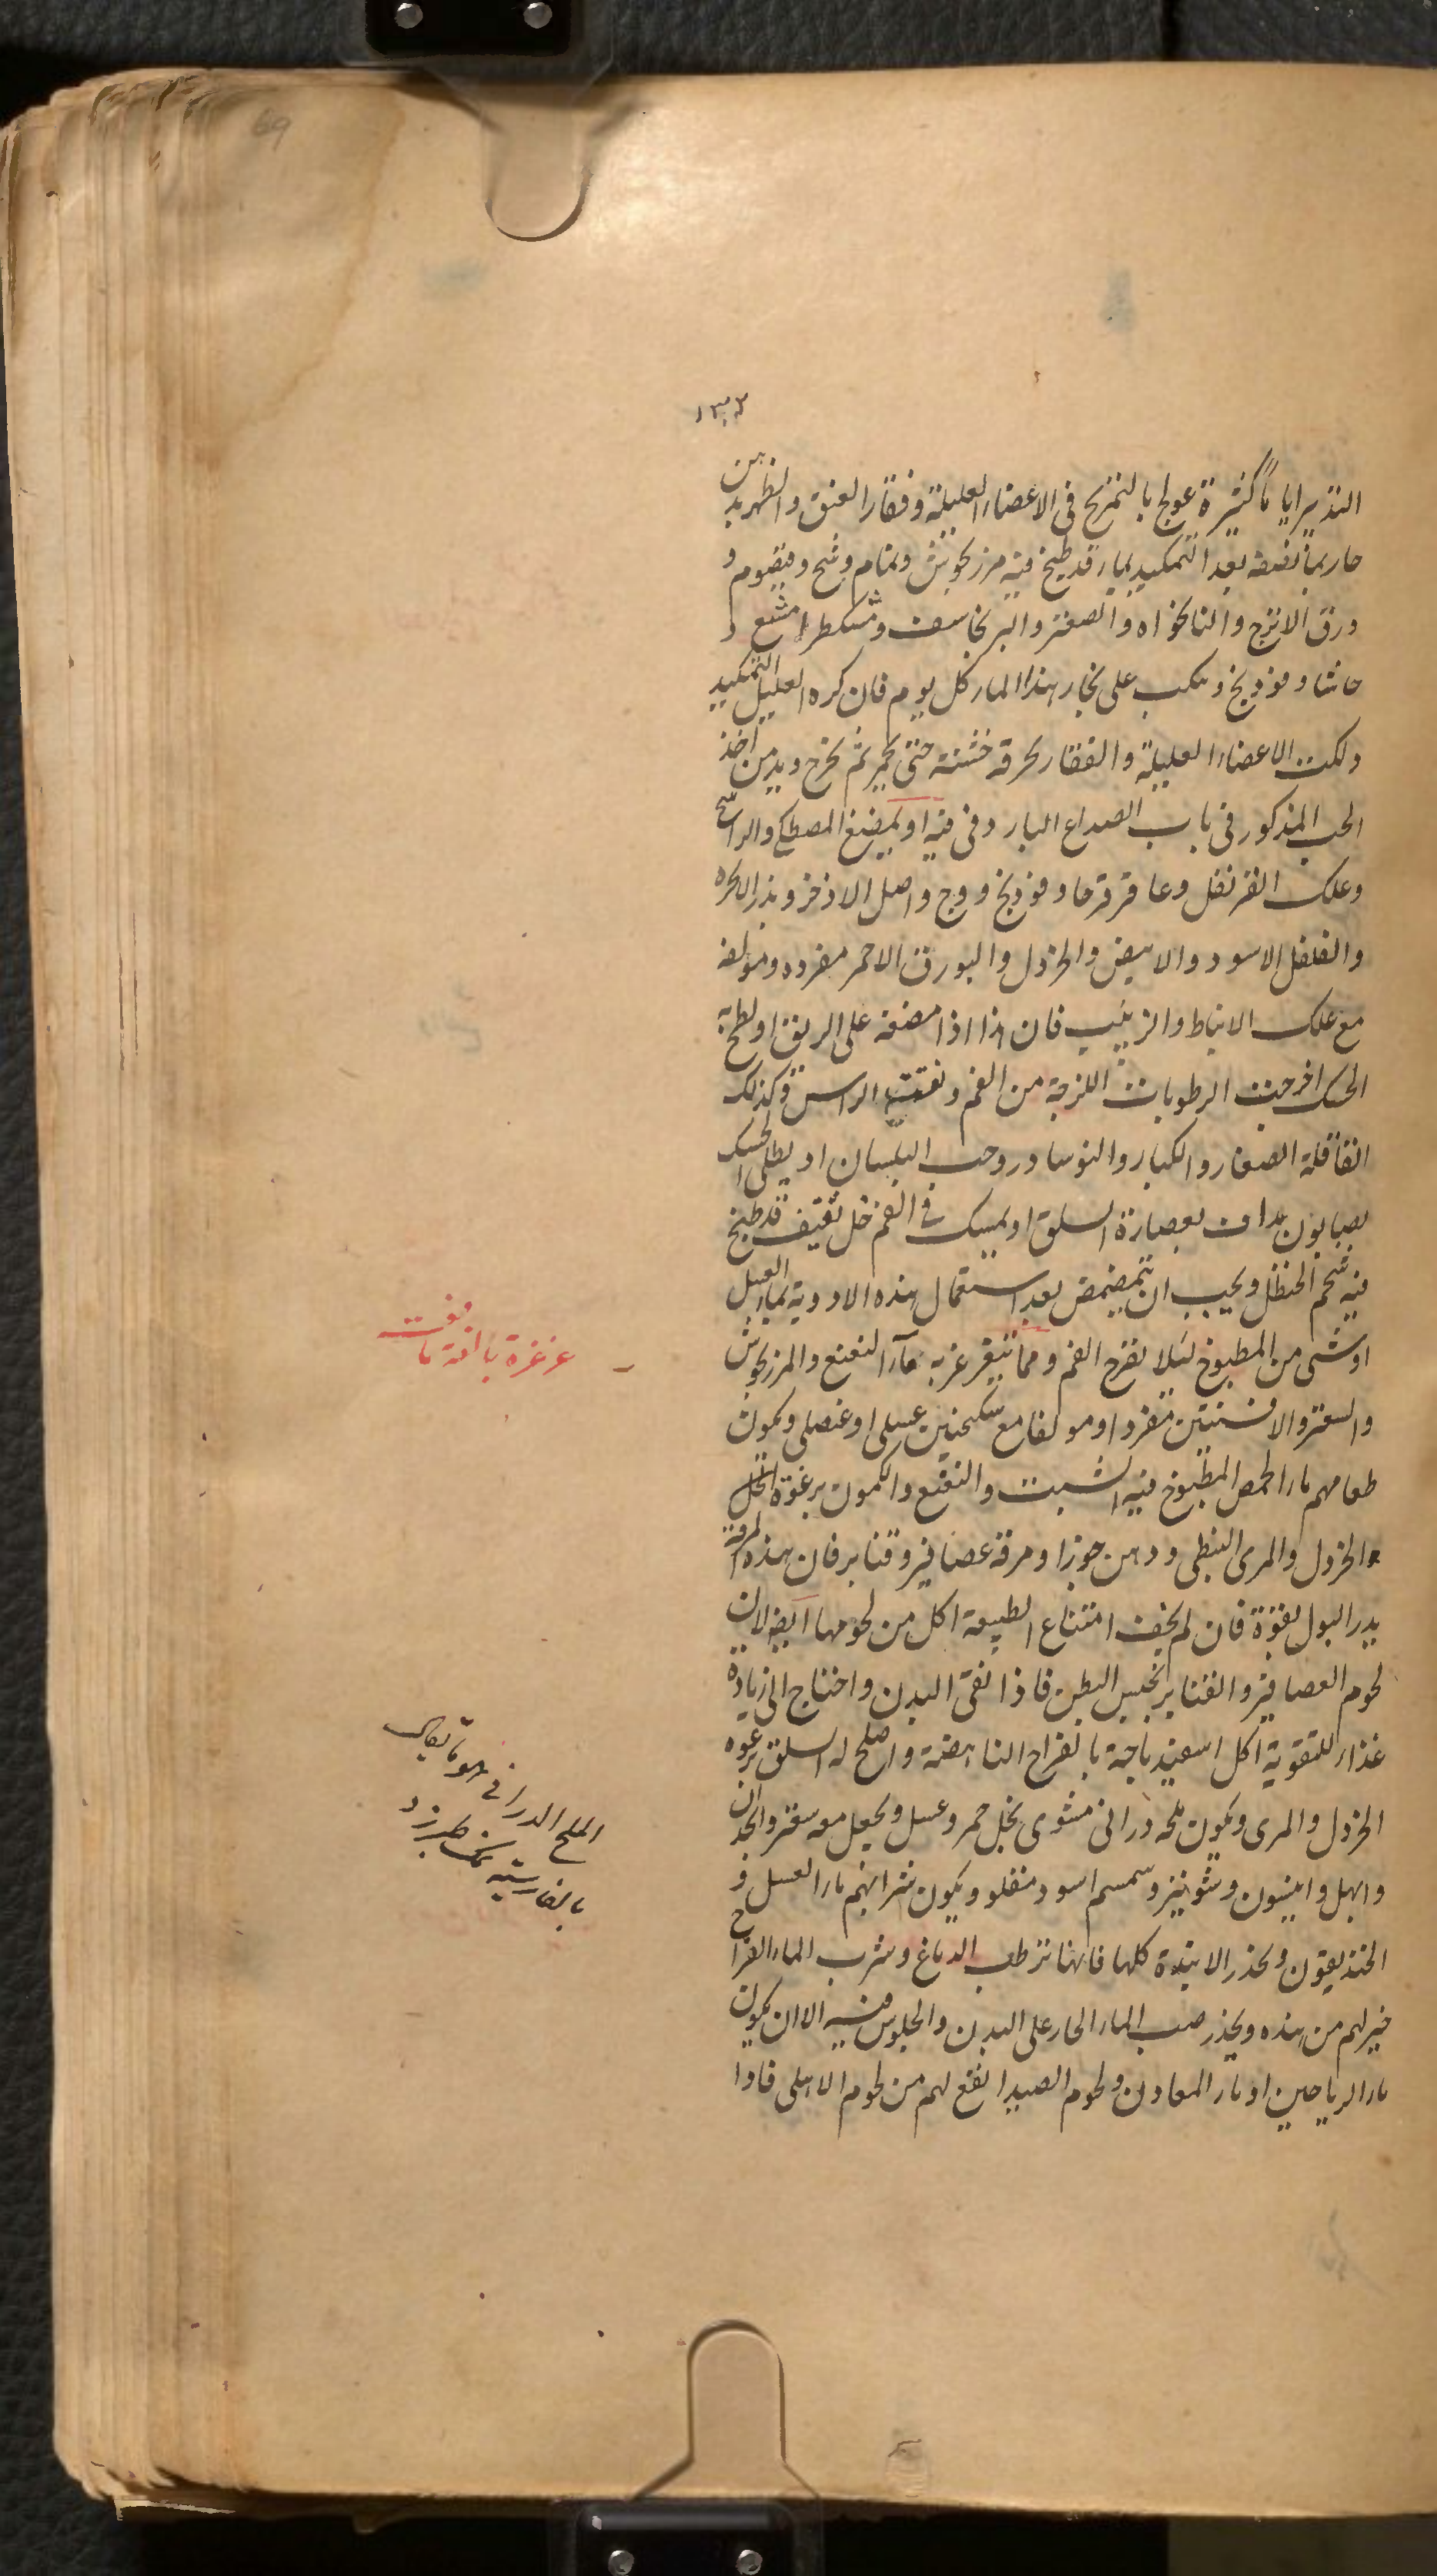 69
۱۳۲
التدبير اياماً كثيرة عولج بالتمريخ فى الاعضاء العليلة وفقار العنق والظهر بدهن
حار بما نصفه بعد التكميد بماء قد طبخ فيه مرزنجوش ونمام وشيح وقيصوم و
ورق الاترج والنانخواه والصعتر والبرنجاسف ومشكطرامشيع و
حاشا وفوذنج ويكب على بخار هذا الماء كل يوم فان كره العليل التكميد
دلكت الاعضاء العليلة والفقار بخرقة خشنة حتى يحمر ثم يمرخ ويدمن اخذ
الحب المذكور فى باب الصداع البارد وفى فيه او يمضغ المصطكى والراسخ
وعلك القرنفل وعاقرقرحا وفوذنج ووج واصل الاذخر وبزر الانجره
والفلفل الاسود والابيض والخردل والبورق الاحمر مفرده ومؤلفه
مع علك الانباط والزبيب فان هذا اذا مضغه على الريق او لطخ به
الحنك اخرجت الرطوبات اللزجة من الفم ونقت الراس وكذلك
القاقلة الصغار والكبار والنوشادر وحب البلسان او يطلى الحنك
بصابون يداف بعصارة السلق او يمسك فى الفم خل ثقيف قد طبخ
فيه شحم الحنظل ويجب ان يتمضمض بعد استعمال هذه الادوية بماء العسل
او شى من المطبوخ لئلا يقرح الفم ومما يتغرغر به ماء النعنع والمرزنجوش
والسعتر والافسنتين مفردا ومولفا مع سكنجبين عسلى او عنصلى ويكون
طعامهم ماء الحمص المطبوخ فيه الشبت والنعنع والكمون برغوة الخل
والخردل والمرى النبطى ودهن جوز او مرقة عصافير وقنابر فان هذه المرقة
يدر البول بقوة فان لم يخف امتناع الطبيعة اكل من لحومها ايضا لان
لحوم العصافير والقنابر يحبس البطن فاذا نقى البدن واحتاج الى زيادة
غذاء للتقوية اكل اسفيدباجة بالفراخ الناهضة واصلح له السلق برغوه
الخردل والمرى ويكون ملحه درانى مشوى بخل خمر وعسل ويجعل معه سعتر وانجدان
وابهل وانيسون وشونيز وسمسم اسود مقلو ويكون شرابهم ماء العسل و
الخنديقون ويحذر الانبذة كلها فانها ترطب الدماغ وشرب الماء القراح
خير لهم من هذه ويحذر صب الماء الحار على البدن والجلوس فيه الا ان يكون
ماء الرياحين او ماء المعادن ولحوم الصيد انفع لهم من لحوم الاهلى فاذا
غرغرة
الملح الدرانى هو ما يقال
بالفارسية نمك طبرزد